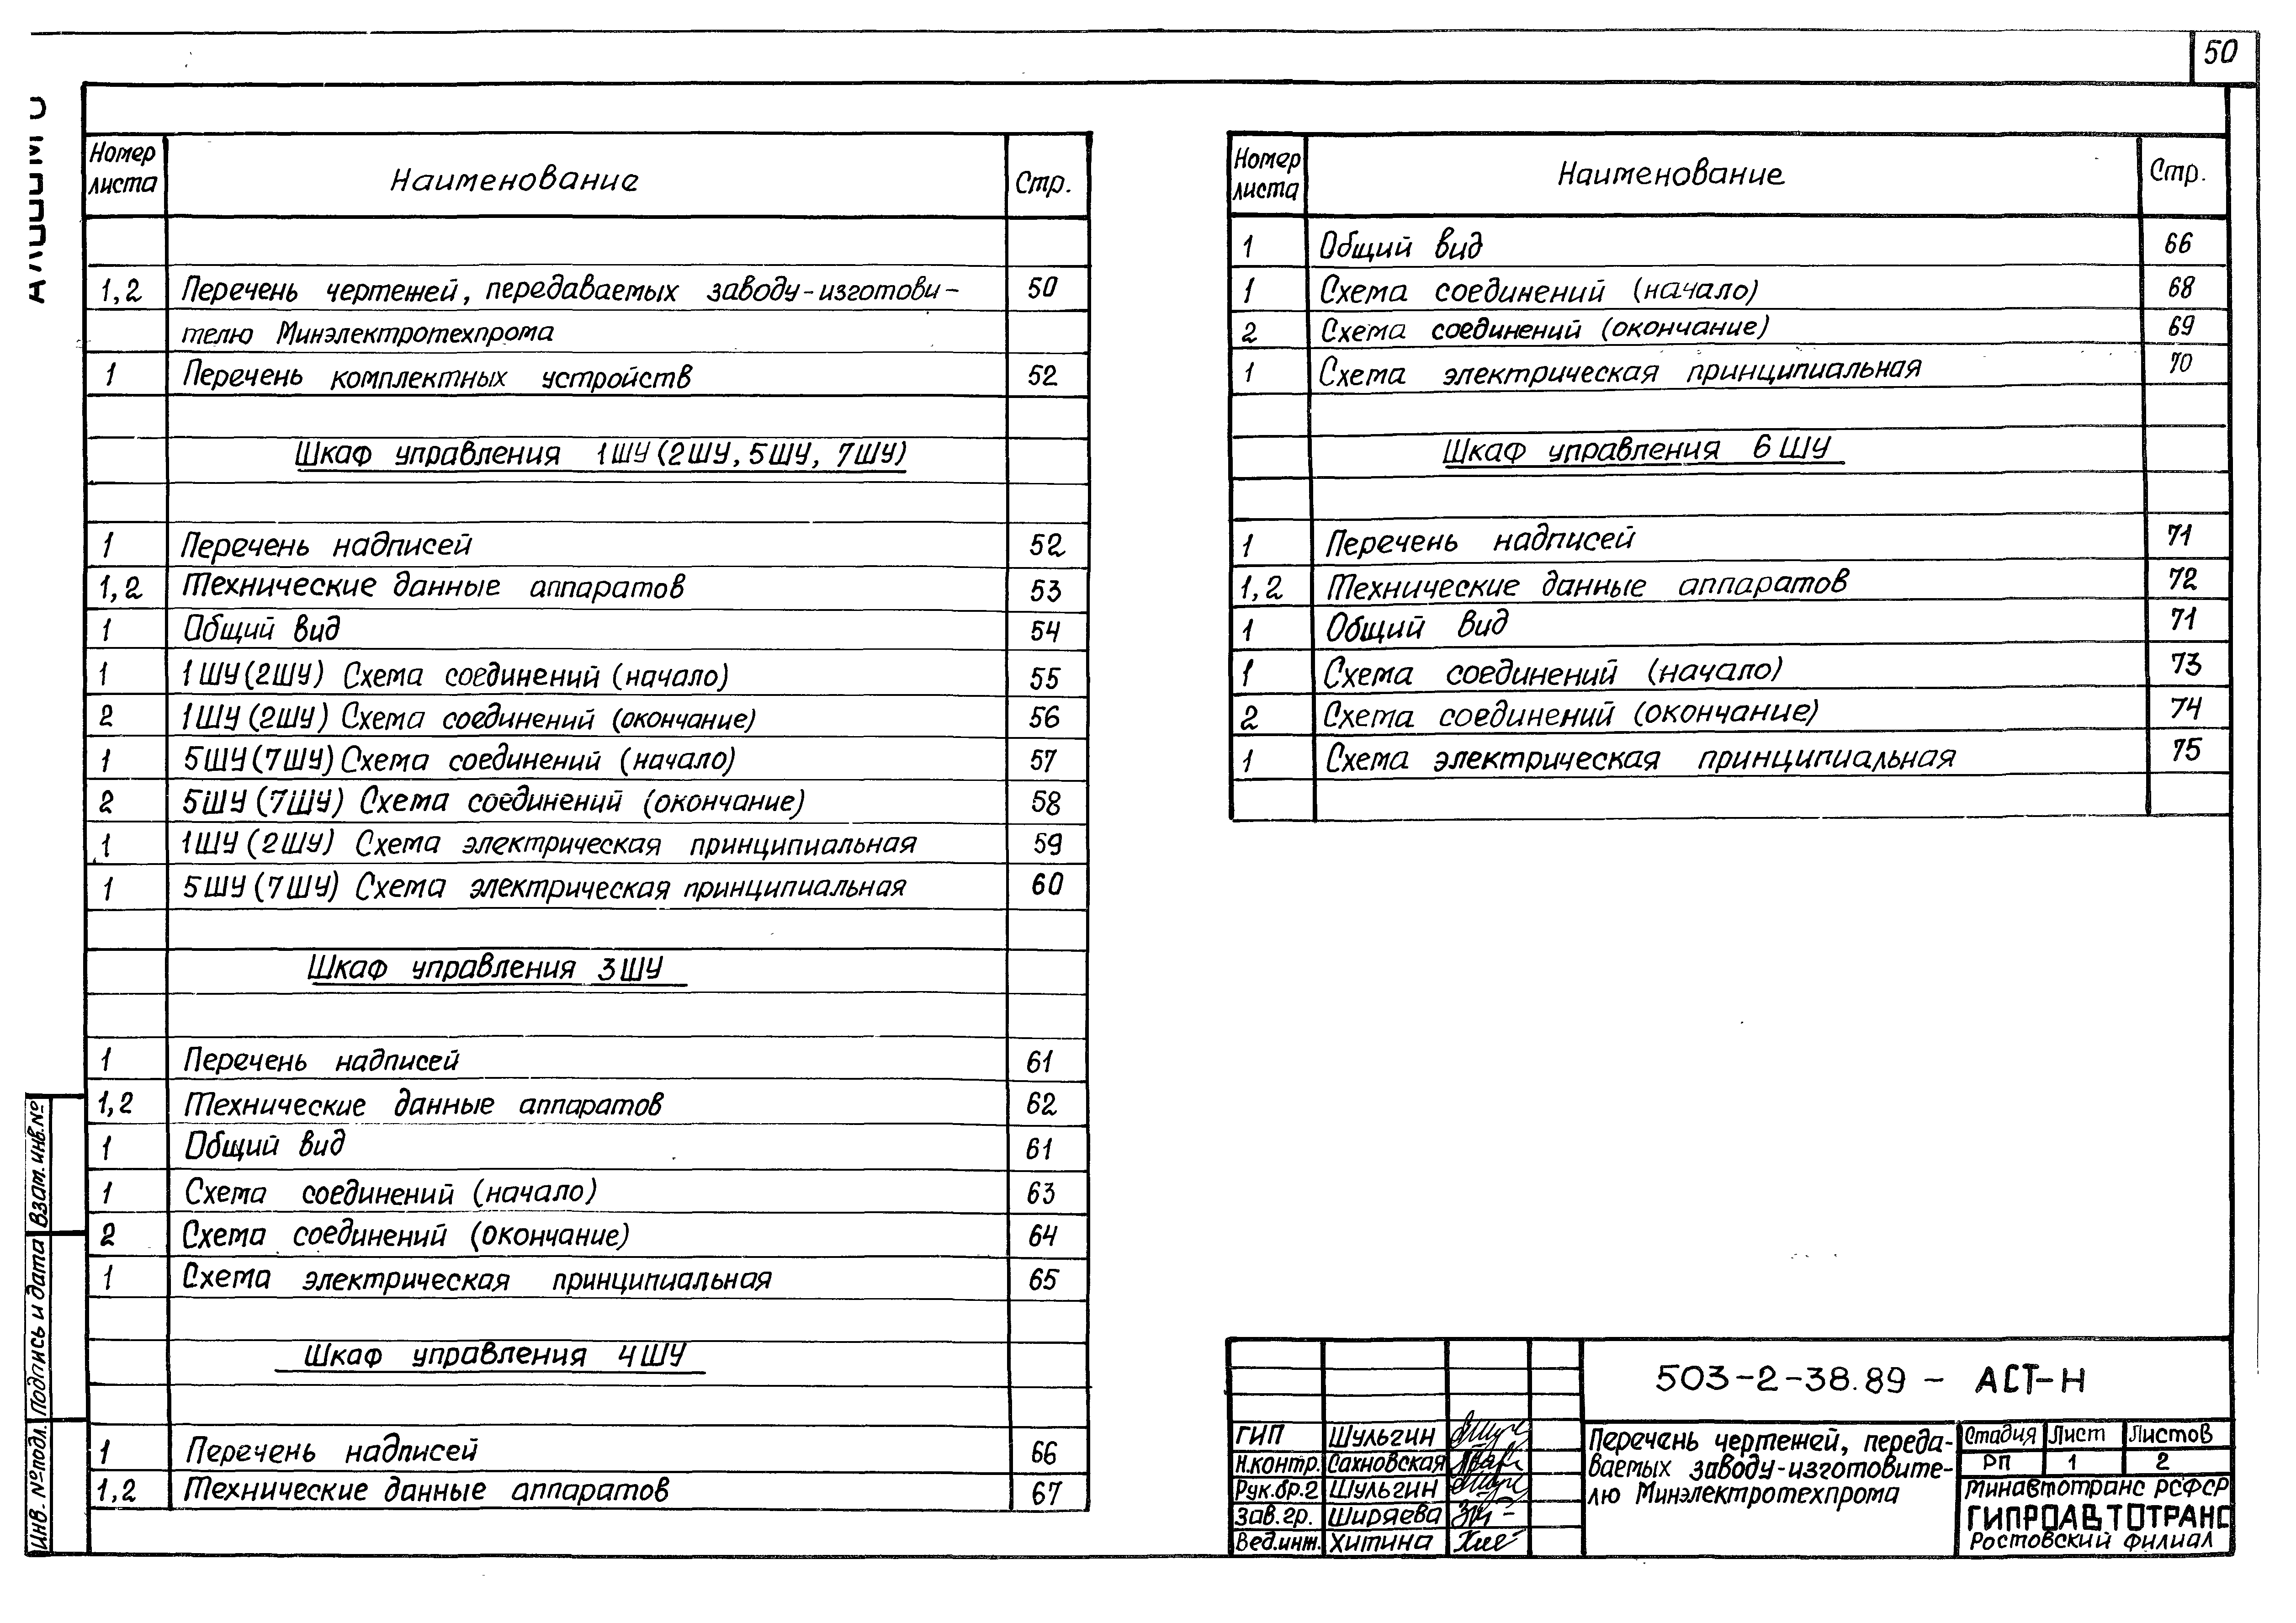 50
Номер листа Наименование Стр.
1,2 Перечень чертежей, передаваемых заводу-изготови- 50
телю Минэлектротехпрома
1 Перечень комплектных устройств 52
Шкаф управления 1ШУ (2ШУ, 5ШУ, 7ШУ)
1 Перечень надписей 52
1,2 Технические данные аппаратов 53
1 Общий вид 54
1 1ШУ (2ШУ) Схема соединений (начало) 55
2 1ШУ (2ШУ) Схема соединений (окончание) 56
1 5ШУ (7ШУ) Схема соединений (начало) 57
2 5ШУ (7ШУ) Схема соединений (окончание) 58
1 1ШУ (2ШУ) Схема электрическая принципиальная 59
1 5ШУ (7ШУ) Схема электрическая принципиальная 60
Шкаф управления 3ШУ
1 Перечень надписей 61
1,2 Технические данные аппаратов 62
1 Общий вид 61
1 Схема соединений (начало) 63
2 Схема соединений (окончание) 64
1 Схема электрическая принципиальная 65
Шкаф управления 4ШУ
1 Перечень надписей 66
1,2 Технические данные аппаратов 67
Номер листа Наименование Стр.
1 Общий вид 66
1 Схема соединений (начало) 68
2 Схема соединений (окончание) 69
1 Схема электрическая принципиальная 70
Шкаф управления 6ШУ
1 Перечень надписей 71
1,2 Технические данные аппаратов 72
1 Общий вид 71
1 Схема соединений (начало) 73
2 Схема соединений (окончание) 74
1 Схема электрическая принципиальная 75
Инв. № подл. Подпись и дата Взам. инв. №
503-2-38.89 - АСТ-Н
ГИП Шульгин
Н.контр. Сахновская
Рук.бр.2 Шульгин
Зав.гр. Ширяева
Вед.инж. Хитина
Перечень чертежей, переда-
ваемых заводу-изготовите-
лю Минэлектротехпрома
Стадия Лист Листов
РП 1 2
Минавтотранс РСФСР
ГИПРОАВТОТРАНС
Ростовский филиал